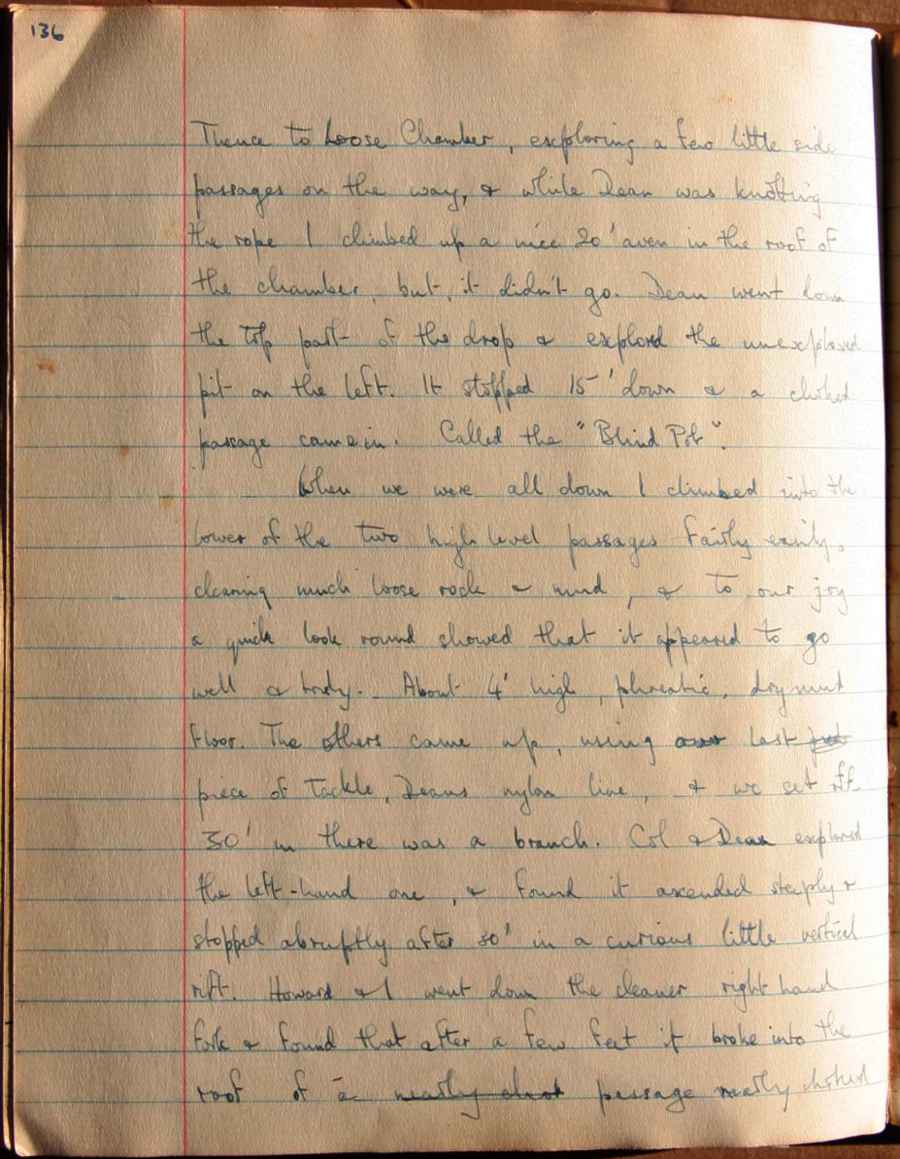 136
Thence to Loose Chamber, exploring a few little side
passages on the way, & while Dean was knotting
the rope I climbed up a nice 20' aven in the roof of
the chamber, but it didn't go. Dean went down
the top part of the drop & explored the unexplored
pit on the left. It stopped 15' down & a choked
passage came in. Called the "Blind Pot".
When we were all down I climbed into the
lower of the two high level passages fairly easily,
clearing much loose rock & mud, & to our joy
a quick look round showed that it appeared to go
well & truly. About 4' high, phreatic, dry mud
floor. The others came up, using our last
piece of tackle, Deans nylon line, & we set off.
30' in there was a branch. Col & Dean explored
the left-hand one, & found it ascended steeply &
stopped abruptly after 30' in a curious little vertical
rift. Howard & I went down the cleaner right hand
fork & found that after a few feet it broke into the
roof of a nearly choked passage nearly choked